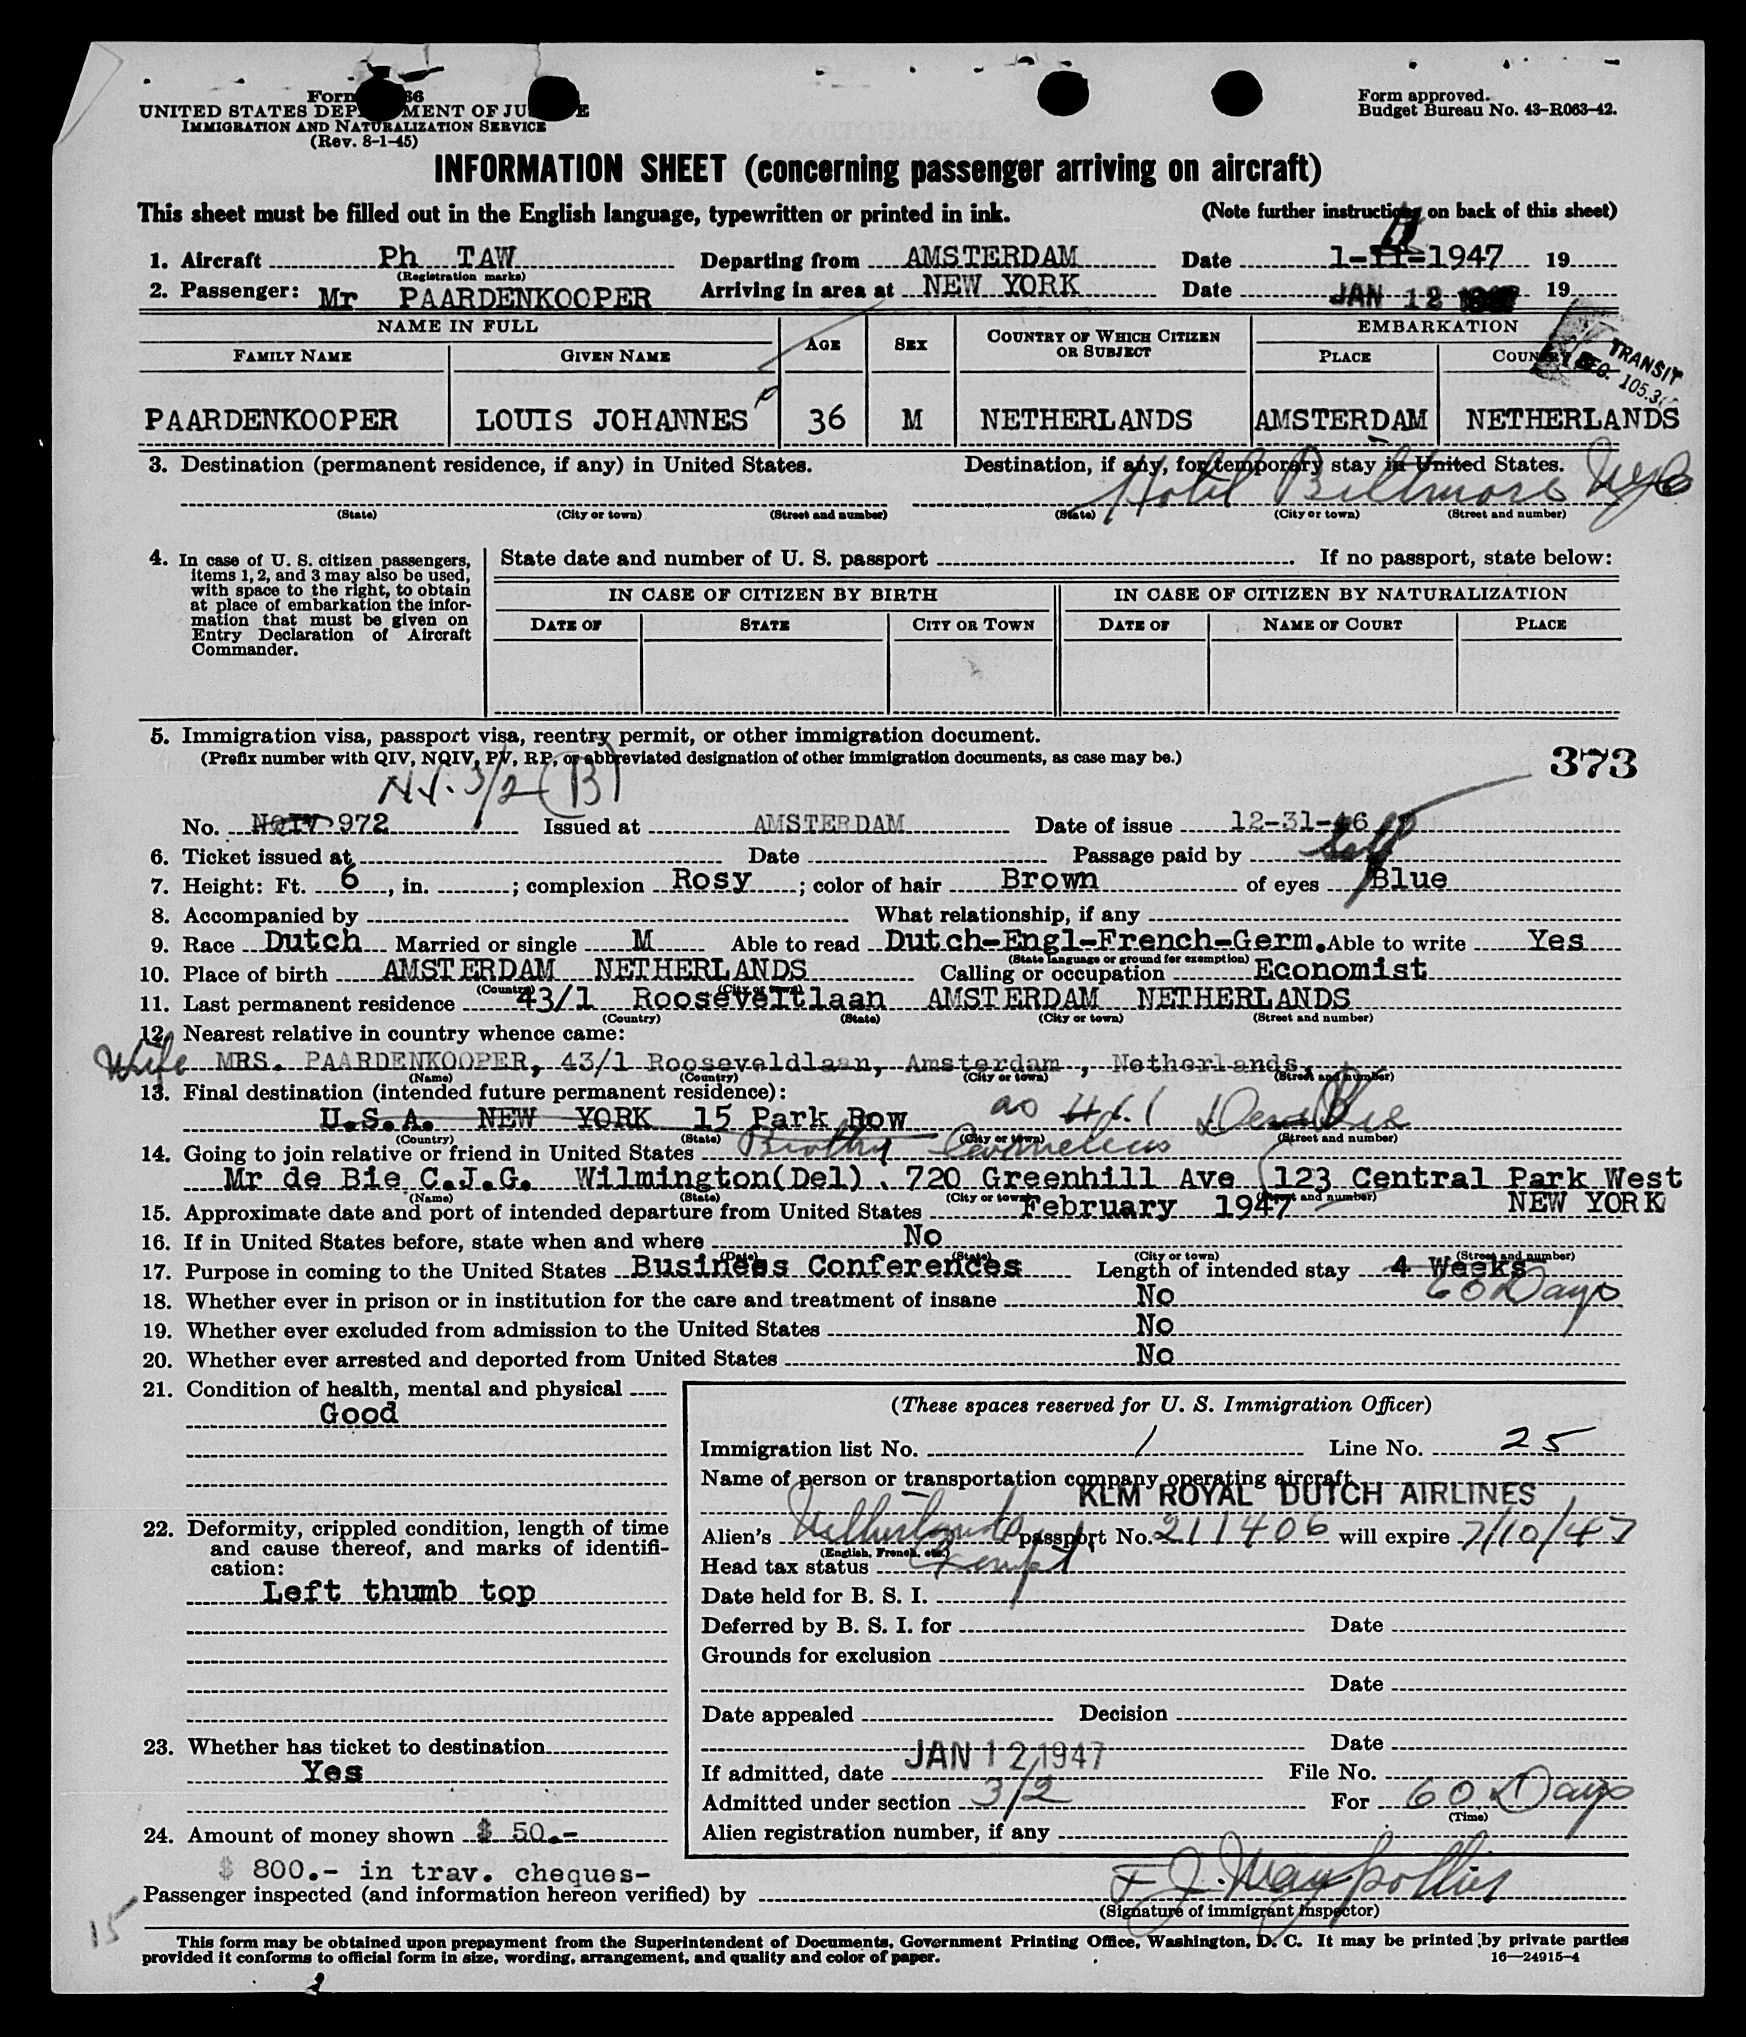 Form 66
UNITED STATES DEP MENT OF JU E
IMMIGRATION AND NATURALIZATION SERVICE
(Rev. 8-1-45)
Form approved.
Budget Bureau No. 43-R063-42.
INFORMATION SHEET (concerning passenger arriving on aircraft)
This sheet must be filled out in the English language, typewritten or printed in ink. (Note further instructions on back of this sheet)
1. Aircraft Ph TAW Departing from AMSTERDAM Date 1-11-1947 19
(Registration marks)
2. Passenger: Mr PAARDENKOOPER Arriving in area at NEW YORK Date JAN 12 1947 19
NAME IN FULL AGE SEX COUNTRY OF WHICH CITIZEN OR SUBJECT EMBARKATION
FAMILY NAME GIVEN NAME PLACE COUNTRY
TRANSIT
REG. 105.3
PAARDENKOOPER LOUIS JOHANNES 36 M NETHERLANDS AMSTERDAM NETHERLANDS
3. Destination (permanent residence, if any) in United States. Destination, if any, for temporary stay in United States.
Hotel Biltmore NYC
(State) (City or town) (Street and number) (State) (City or town) (Street and number)
4. In case of U. S. citizen passengers, items 1, 2, and 3 may also be used, with space to the right, to obtain at place of embarkation the information that must be given on Entry Declaration of Aircraft Commander.
State date and number of U. S. passport If no passport, state below:
IN CASE OF CITIZEN BY BIRTH IN CASE OF CITIZEN BY NATURALIZATION
DATE OF STATE CITY OR TOWN DATE OF NAME OF COURT PLACE
5. Immigration visa, passport visa, reentry permit, or other immigration document.
(Prefix number with QIV, NQIV, PV, RP, or abbreviated designation of other immigration documents, as case may be.)
373
3/2 (B)
No. NQIV 972 Issued at AMSTERDAM Date of issue 12-31-46
6. Ticket issued at Date Passage paid by self
7. Height: Ft. 6, in. ; complexion Rosy ; color of hair Brown of eyes Blue
8. Accompanied by What relationship, if any
9. Race Dutch Married or single M Able to read Dutch-Engl-French-Germ. Able to write Yes
(State language or ground for exemption)
10. Place of birth AMSTERDAM NETHERLANDS Calling or occupation Economist
(Country) (City or town)
11. Last permanent residence 43/1 Rooseveltlaan AMSTERDAM NETHERLANDS
(Country) (State) (City or town) (Street and number)
12. Nearest relative in country whence came:
Wife MRS. PAARDENKOOPER, 43/1 Rooseveldlaan, Amsterdam, Netherlands.
(Name) (Country) (City or town) (Street and number)
13. Final destination (intended future permanent residence):
U.S.A. NEW YORK 15 Park Row as
(Country) (State) (City or town) (Street and number)
14. Going to join relative or friend in United States Brother Cornelius
Mr de Bie C.J.G. Wilmington(Del). 720 Greenhill Ave (123 Central Park West
(Name) (State) (City or town) (Street and number)
NEW YORK
15. Approximate date and port of intended departure from United States February 1947
16. If in United States before, state when and where No
(Date) (State) (City or town) (Street and number)
17. Purpose in coming to the United States Business Conferences Length of intended stay 4 Weeks
60 Days
18. Whether ever in prison or in institution for the care and treatment of insane No
19. Whether ever excluded from admission to the United States No
20. Whether ever arrested and deported from United States No
21. Condition of health, mental and physical
Good
22. Deformity, crippled condition, length of time and cause thereof, and marks of identification:
Left thumb top
23. Whether has ticket to destination
Yes
24. Amount of money shown $ 50.-
$ 800.- in trav. cheques-
(These spaces reserved for U. S. Immigration Officer)
Immigration list No. 1 Line No. 25
Name of person or transportation company operating aircraft
KLM ROYAL DUTCH AIRLINES
Alien's Netherlands passport No. 211406 will expire 7/10/47
(English, French, etc.)
Head tax status Exempt
Date held for B. S. I.
Deferred by B. S. I. for Date
Grounds for exclusion
Date
Date appealed Decision
Date
If admitted, date JAN 12 1947 File No.
Admitted under section 3/2 For 60 Days
(Time)
Alien registration number, if any
Passenger inspected (and information hereon verified) by
(Signature of immigrant inspector)
15
This form may be obtained upon prepayment from the Superintendent of Documents, Government Printing Office, Washington, D. C. It may be printed by private parties
provided it conforms to official form in size, wording, arrangement, and quality and color of paper.
16—24915-4